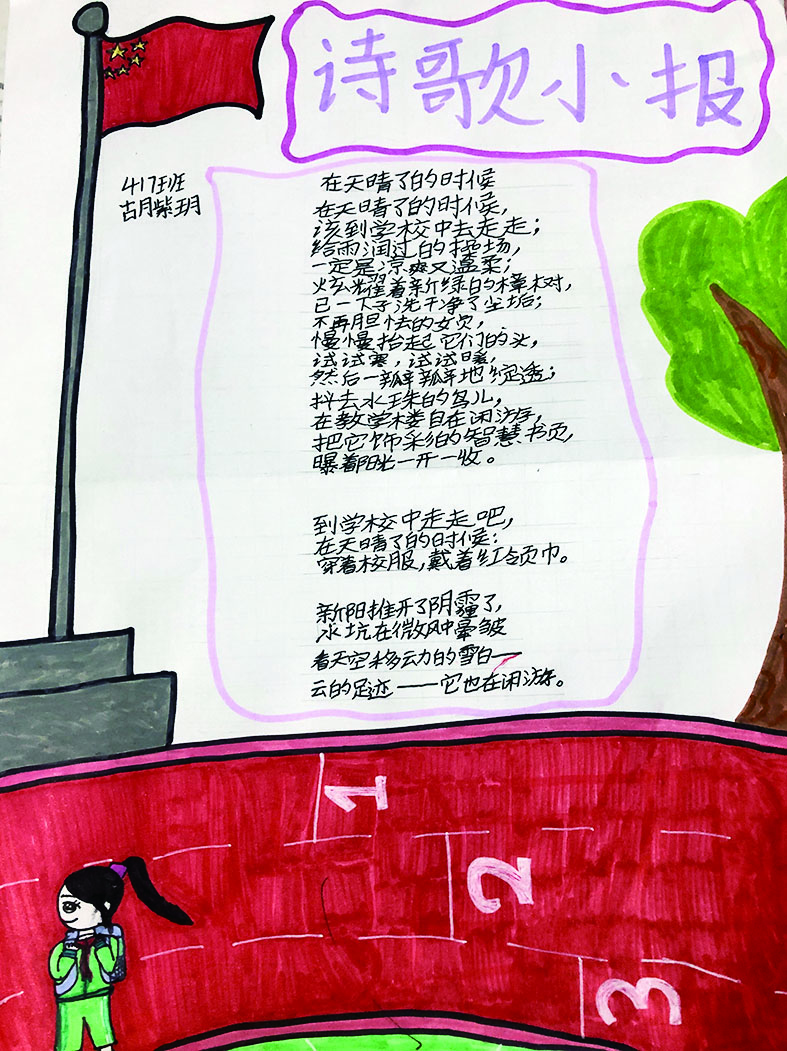 诗歌小报
417班
胡紫玥
在天晴了的时候
在天晴了的时候，
该到学校中去走走；
给雨润过的操场，
一定是凉爽又温柔；
炫耀着新绿的樟树，
已一下子洗干净了尘垢；
不再胆怯的女贞，
慢慢抬起它们的头，
试试寒，试试暖，
然后一瓣瓣地绽透；
抖去水珠的鸟儿，
在教学楼自在闲游，
把它饰彩的智慧书页，
曝着阳光一开一收。
到学校中走走吧，
在天晴了的时候：
穿着校服，戴着红领巾。
新阳推开了阴霾了，
水坑在微风中晕皱
看天空移动的雪白——
云的足迹——它也在闲游。
1
2
3